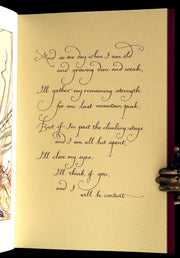 And so one day when I am old
and growing dim and weak,
I'll gather my remaining strength
for one last mountain peak.
But if I'm past the climbing stage
and I am all but spent,
I'll close my eyes,
I'll think of you,
and I
will be content.